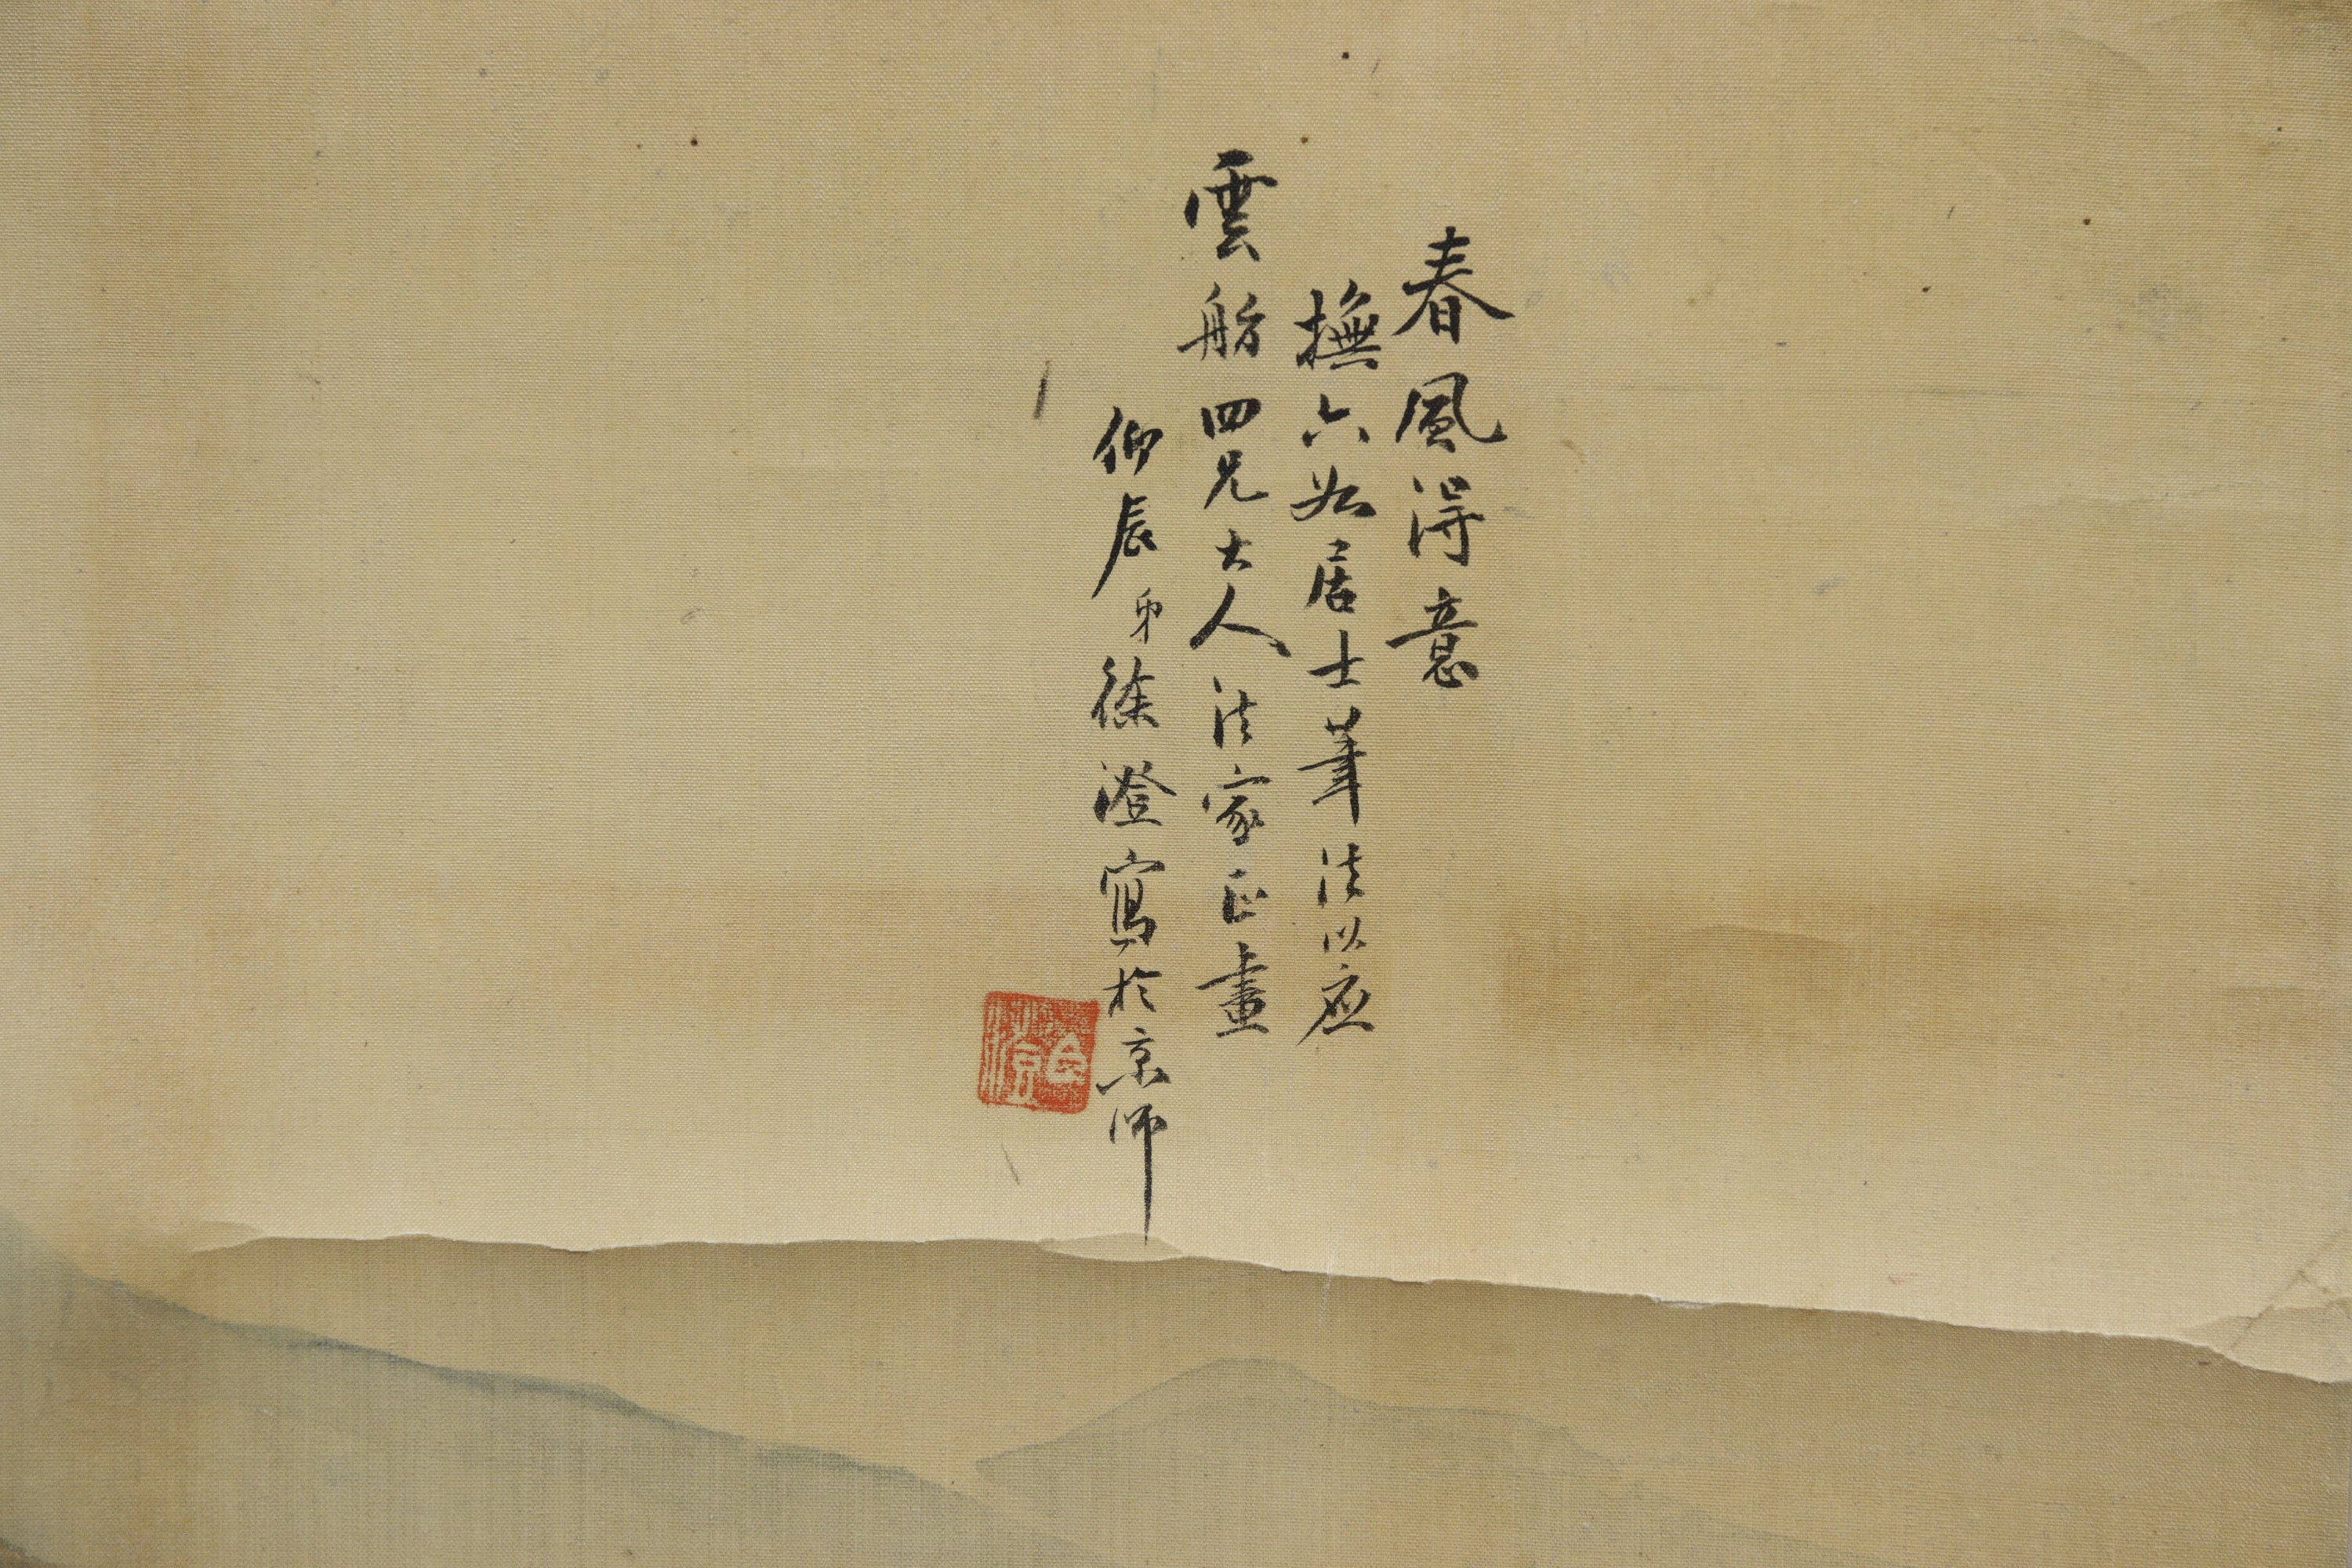 春風得意
撫六如居士筆法以应
雲舫四兄大人法家正畫
仰辰弟徐澄寫於京師